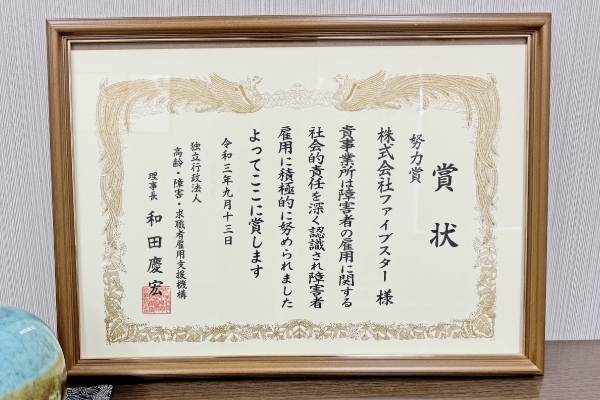 賞状
努力賞
株式会社ファイブスター 様
貴事業所は障害者の雇用に関する
社会的責任を深く認識され障害者
雇用に積極的に努められました
よってここに賞します
令和三年九月十三日
独立行政法人
高齢・障害・求職者雇用支援機構
理事長 和田慶宏